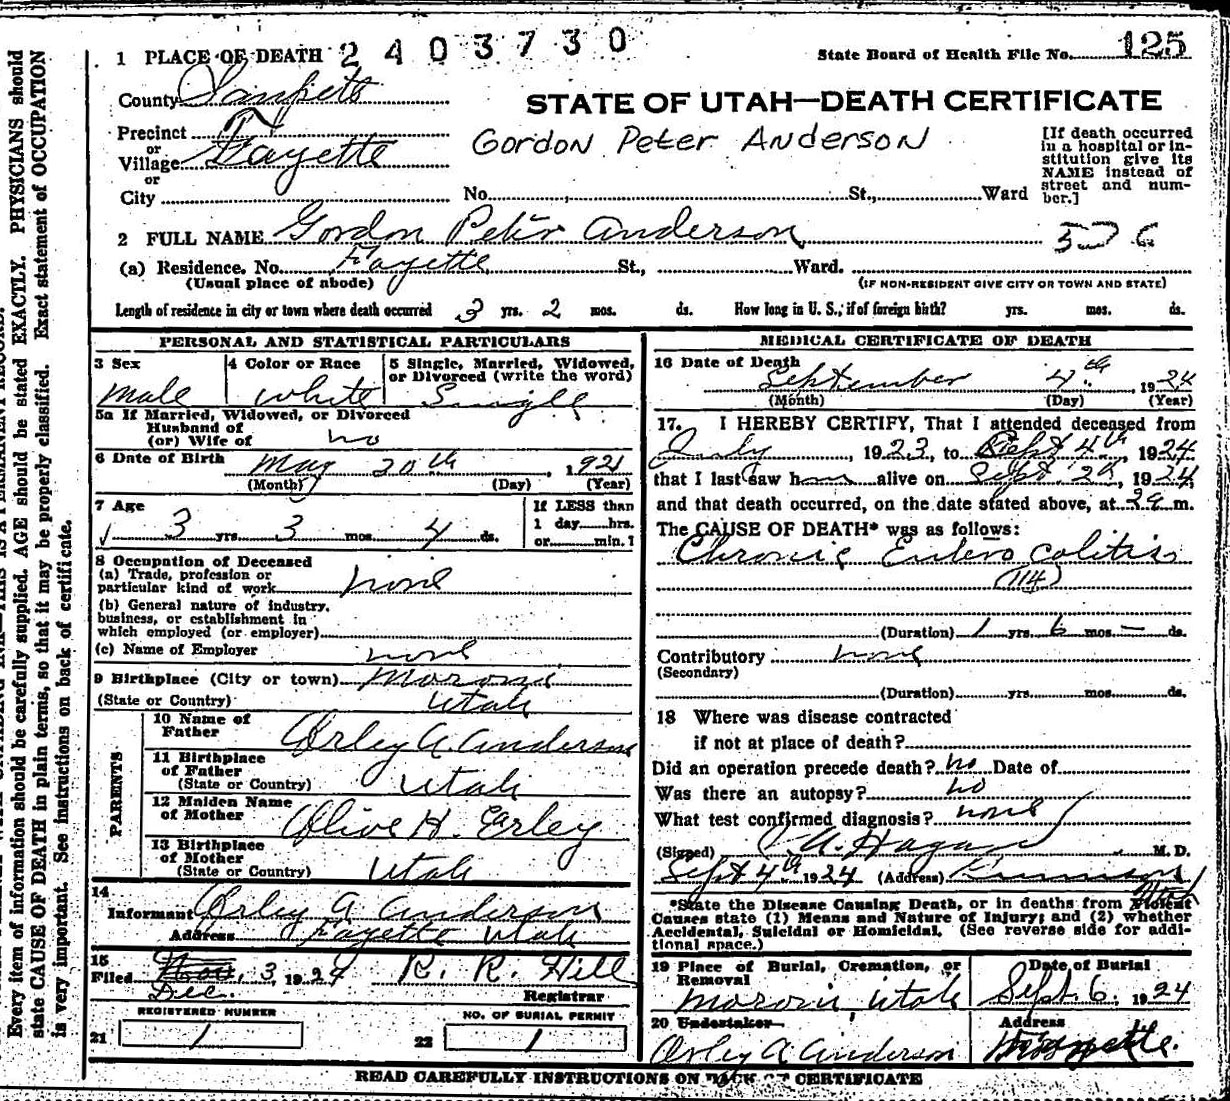 1 PLACE OF DEATH 2403730 State Board of Health File No. 125
County Sanpete
STATE OF UTAH—DEATH CERTIFICATE
Precinct
or
Village Fayette
or
City
Gordon Peter Anderson
No. St., Ward
[If death occurred
in a hospital or in-
stitution give its
NAME instead of
street and num-
ber.]
2 FULL NAME Gordon Peter Anderson
(a) Residence. No. Fayette St., Ward.
(Usual place of abode) (IF NON-RESIDENT GIVE CITY OR TOWN AND STATE)
Length of residence in city or town where death occurred 3 yrs. 2 mos. ds. How long in U. S., if of foreign birth? yrs. mos. ds.
PERSONAL AND STATISTICAL PARTICULARS
3 Sex
male
4 Color or Race
white
5 Single, Married, Widowed,
or Divorced (write the word)
Single
5a If Married, Widowed, or Divorced
Husband of
(or) Wife of no
6 Date of Birth May 20th, 1921
(Month) (Day) (Year)
7 Age
3 yrs. 3 mos. 4 ds.
If LESS than
1 day hrs.
or min. ?
8 Occupation of Deceased
(a) Trade, profession or
particular kind of work none
(b) General nature of industry,
business, or establishment in
which employed (or employer)
(c) Name of Employer none
9 Birthplace (City or town) Moroni
(State or Country) Utah
PARENTS
10 Name of
Father Orley A. Anderson
11 Birthplace
of Father
(State or Country) Utah
12 Maiden Name
of Mother Olive H. Erley
13 Birthplace
of Mother
(State or Country) Utah
14
Informant Orley A Anderson
Address Fayette Utah
15
Filed Nov. 3, 1924 R. R. Hill
Dec. Registrar
REGISTERED NUMBER
21 1
NO. OF BURIAL PERMIT
22 1
MEDICAL CERTIFICATE OF DEATH
16 Date of Death
September 4th, 1924
(Month) (Day) (Year)
17. I HEREBY CERTIFY, That I attended deceased from
July, 1923, to Sept 4th, 1924
that I last saw h alive on Sept. 2d, 1924,
and that death occurred, on the date stated above, at 3 a m.
The CAUSE OF DEATH* was as follows:
Chronic Entero colitis
(114)
(Duration) 1 yrs. 6 mos. — ds.
Contributory none
(Secondary)
(Duration) yrs. mos. ds.
18 Where was disease contracted
if not at place of death?
Did an operation precede death? no Date of
Was there an autopsy? no
What test confirmed diagnosis? none
(Signed) A. Hagan M. D.
Sept 4th 1924 (Address) Gunnison
Utah
*State the Disease Causing Death, or in deaths from Violent
Causes state (1) Means and Nature of Injury; and (2) whether
Accidental, Suicidal or Homicidal. (See reverse side for addi-
tional space.)
19 Place of Burial, Cremation, or
Removal
Moroni, Utah
Date of Burial
Sept. 6, 1924
20 Undertaker
Orley A Anderson
Address
Fayette.
READ CAREFULLY INSTRUCTIONS ON BACK OF CERTIFICATE
Every item of information should be carefully supplied. AGE should be stated EXACTLY. PHYSICIANS should
state CAUSE OF DEATH in plain terms, so that it may be properly classified. Exact statement of OCCUPATION
is very important. See instructions on back of certificate.